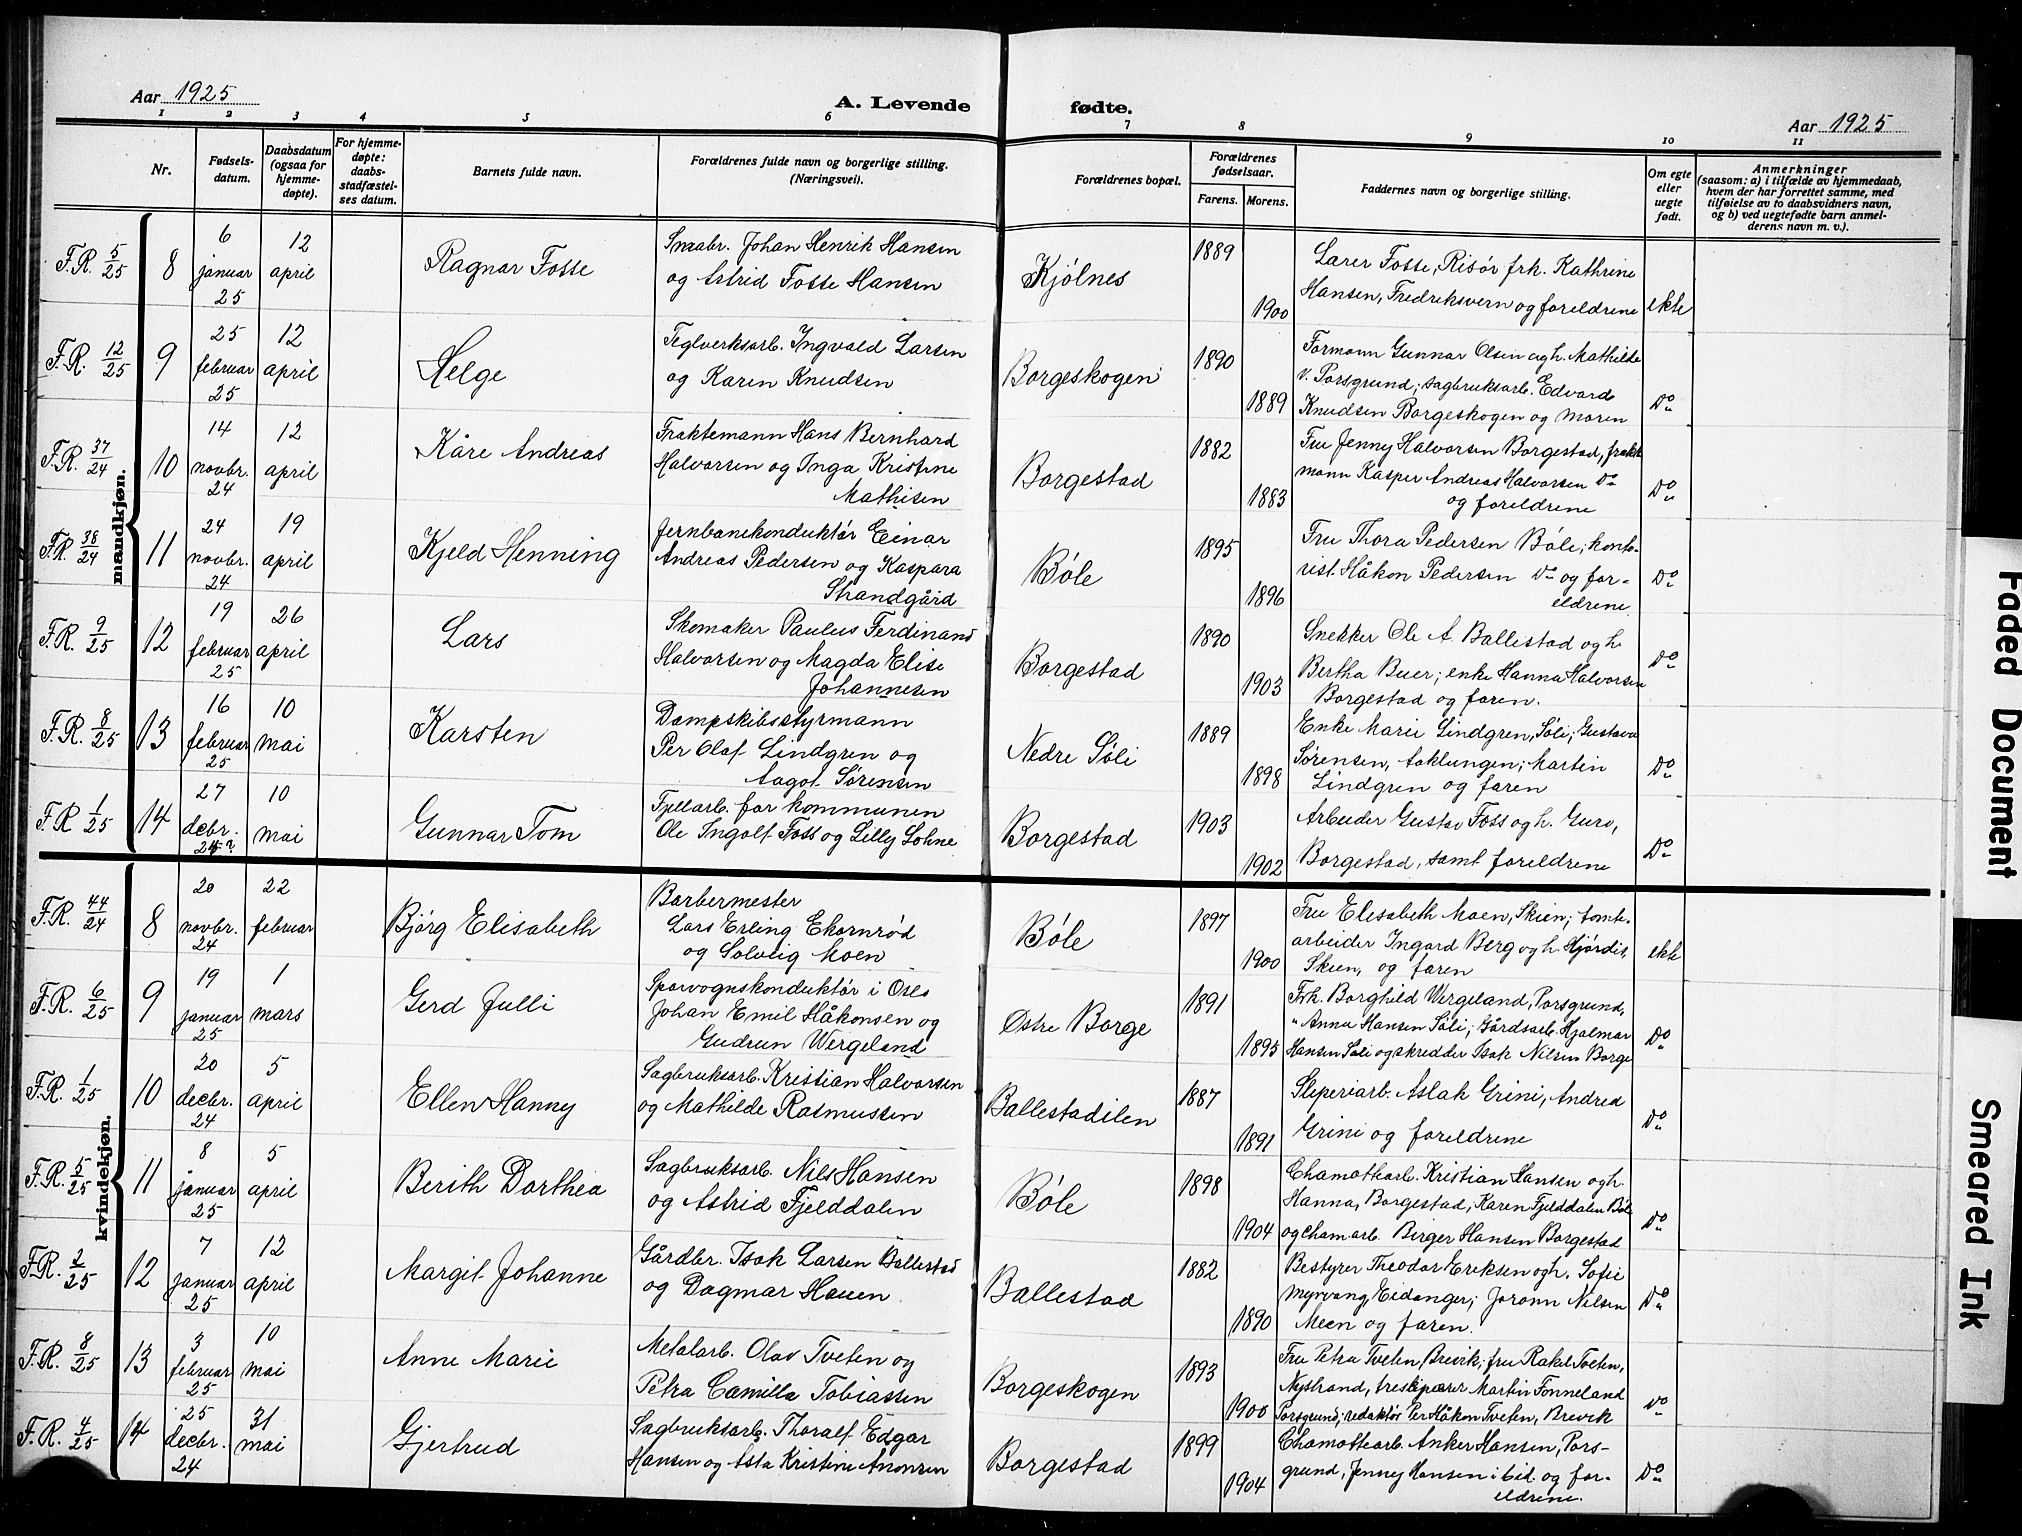 Aar 1925
A. Levende fødte.
Aar 1925
1 2 3 4 5 6 7 8 9 10 11
Nr.
Fødsels-
datum.
Daabsdatum
(ogsaa for
hjemme-
døpte).
For hjemme-
døpte:
daabs-
stadfæstel-
ses datum.
Barnets fulde navn.
Forældrenes fulde navn og borgerlige stilling.
(Næringsvei).
Forældrenes bopæl.
Forældrenes
fødselsaar.
Farens. Morens.
Faddernes navn og borgerlige stilling.
Om egte
eller
uegte
født.
Anmerkninger
(saasom: a) i tilfælde av hjemmedaab,
hvem der har forrettet samme, med
tilføielse av to daabsvidners navn,
og b) ved uegtefødte barn anmel-
derens navn m. v.).
mandkjøn.
F.R. 5/25 8
6 januar 25
12 april
Ragnar Fosse
Smaabr. Johan Henrik Hansen
og Astrid Fosse Hansen
Kjölnes
1889
1900
Lærer Fosse, Risør frk. Kathrine
Hansen, Fredriksvern og foreldrene
ekte
F.R. 12/25 9
25 februar 25
12 april
Helge
Teglverksarb. Ingvald Larsen
og Karen Knudsen
Borgeskogen
1890
1889
Formann Gunnar Olsen og h. Mathilde
V. Porsgrund; sagbruksarb. Edvard
Knudsen Borgeskogen og moren
Do
F.R. 37/24 10
14 novbr. 24
12 april
Kåre Andreas
Fraktemann Hans Bernhard
Halvorsen og Inga Kristine
Mathisen
Borgestad
1882
1883
Fru Jenny Halvorsen Borgestad, frakt
mann Kasper Andreas Halvorsen Do
og foreldrene
Do
F.R. 38/24 11
24 novbr. 24
19 april
Kjeld Henning
Jernbanekonduktør Einar
Andreas Pedersen og Kaspara
Strandgård
Böle
1895
1896
Fru Thora Pedersen Böle; konto-
rist. Håkon Pedersen Do og for-
eldrene
Do
F.R. 9/25 12
19 februar 25
26 april
Lars
Skomaker Paulus Ferdinand
Halvorsen og Magda Elise
Johannesen
Borgestad
1890
1903
Snekker Ole A. Ballestad og h.
Bertha Buer; enke Hanna Halvorsen
Borgestad og faren.
Do
F.R. 8/25 13
16 februar 25
10 mai
Karsten
Dampskibsstyrmann
Per Olaf Lindgren og
Aagot Sørensen
Nedre Söli
1889
1898
Enke Marie Lindgren, Söli; Gustava
Sørensen, Aaklungen; Martin
Lindgren og faren
Do
F.R. 1/25 14
27 debr. 24?
10 mai
Gunnar Tom
Fjellarb. for kommunen
Ole Ingolf Foss og Lilly Lohne
Borgestad
1903
1902
Arbeider Gustav Foss og h. Guro,
Borgestad, samt foreldrene
Do
kvindekjøn.
F.R. 44/24 8
20 novbr. 24
22 februar
Björg Elisabeth
Barbermester
Lars Erling Ekornröd
og Solveig Moen
Böle
1897
1900
Fru Elisabeth Moen, Skien; tomte-
arbeider Ingard Berg og h. Hjördis,
Skien, og faren
ekte
F.R. 6/25 9
19 januar 25
1 mars
Gerd Julli
Sporvognskonduktör i Oslo
Johan Emil Håkonsen og
Gudrun Wergeland
Østre Borge
1891
1895
Frk. Borghild Wergeland, Porsgrund,
" Anna Hansen Söli; Gårdsarb. Hjalmar
Hansen Söli og skredder Isak Nilsen Borge
Do
F.R. 1/25 10
20 decbr. 24
5 april
Ellen Hanny
Sagbruksarb. Kristian Halvorsen
og Mathilde Rasmussen
Ballestadilen
1887
1891
Sliperiarb. Aslak Grini, Andrea
Grini og foreldrene
Do
F.R. 5/25 11
8 januar 25
5 april
Berith Dorthea
Sagbruksarb. Nils Hansen
og Astrid Fjelddalen
Böle
1898
1904
Chamottearb. Kristian Hansen og h.
Hanna, Borgestad; Karen Fjelddalen Böle
og cham arb. Birger Hansen Borgestad
Do
F.R. 2/25 12
7 januar 25
12 april
Margit Johanne
Gårdbr. Isak Larsen Ballestad
og Dagmar Hauen
Ballestad
1882
1890
Bestyrer Theodor Eriksen og h. Sofie
Myrvang, Eidanger; Jorann Nilsen
Meen og faren.
Do
F.R. 8/25 13
3 februar 25
10 mai
Anne Marie
Metalarb. Olav Tveten og
Petra Camilla Tobiassen
Borgeskogen
1893
1900
Fru Petra Tveten, Brevik; fru Rakel Tveten,
Nystrand, tresliper Martin Tonneland
Porsgrund; redaktör Per Håkon Tveten, Brevik
Do
F.R. 4/25 14
25 decbr. 24
31 mai
Gjertrud
Sagbruksarb. Thoralf Edgar
Hansen og Asta Kristine Anonsen
Borgestad
1899
1904
Chamottearb. Anker Hansen, Pors-
grund, Jenny Hansen i bid. og for-
eldrene.
Do
Faded Document
Smeared Ink